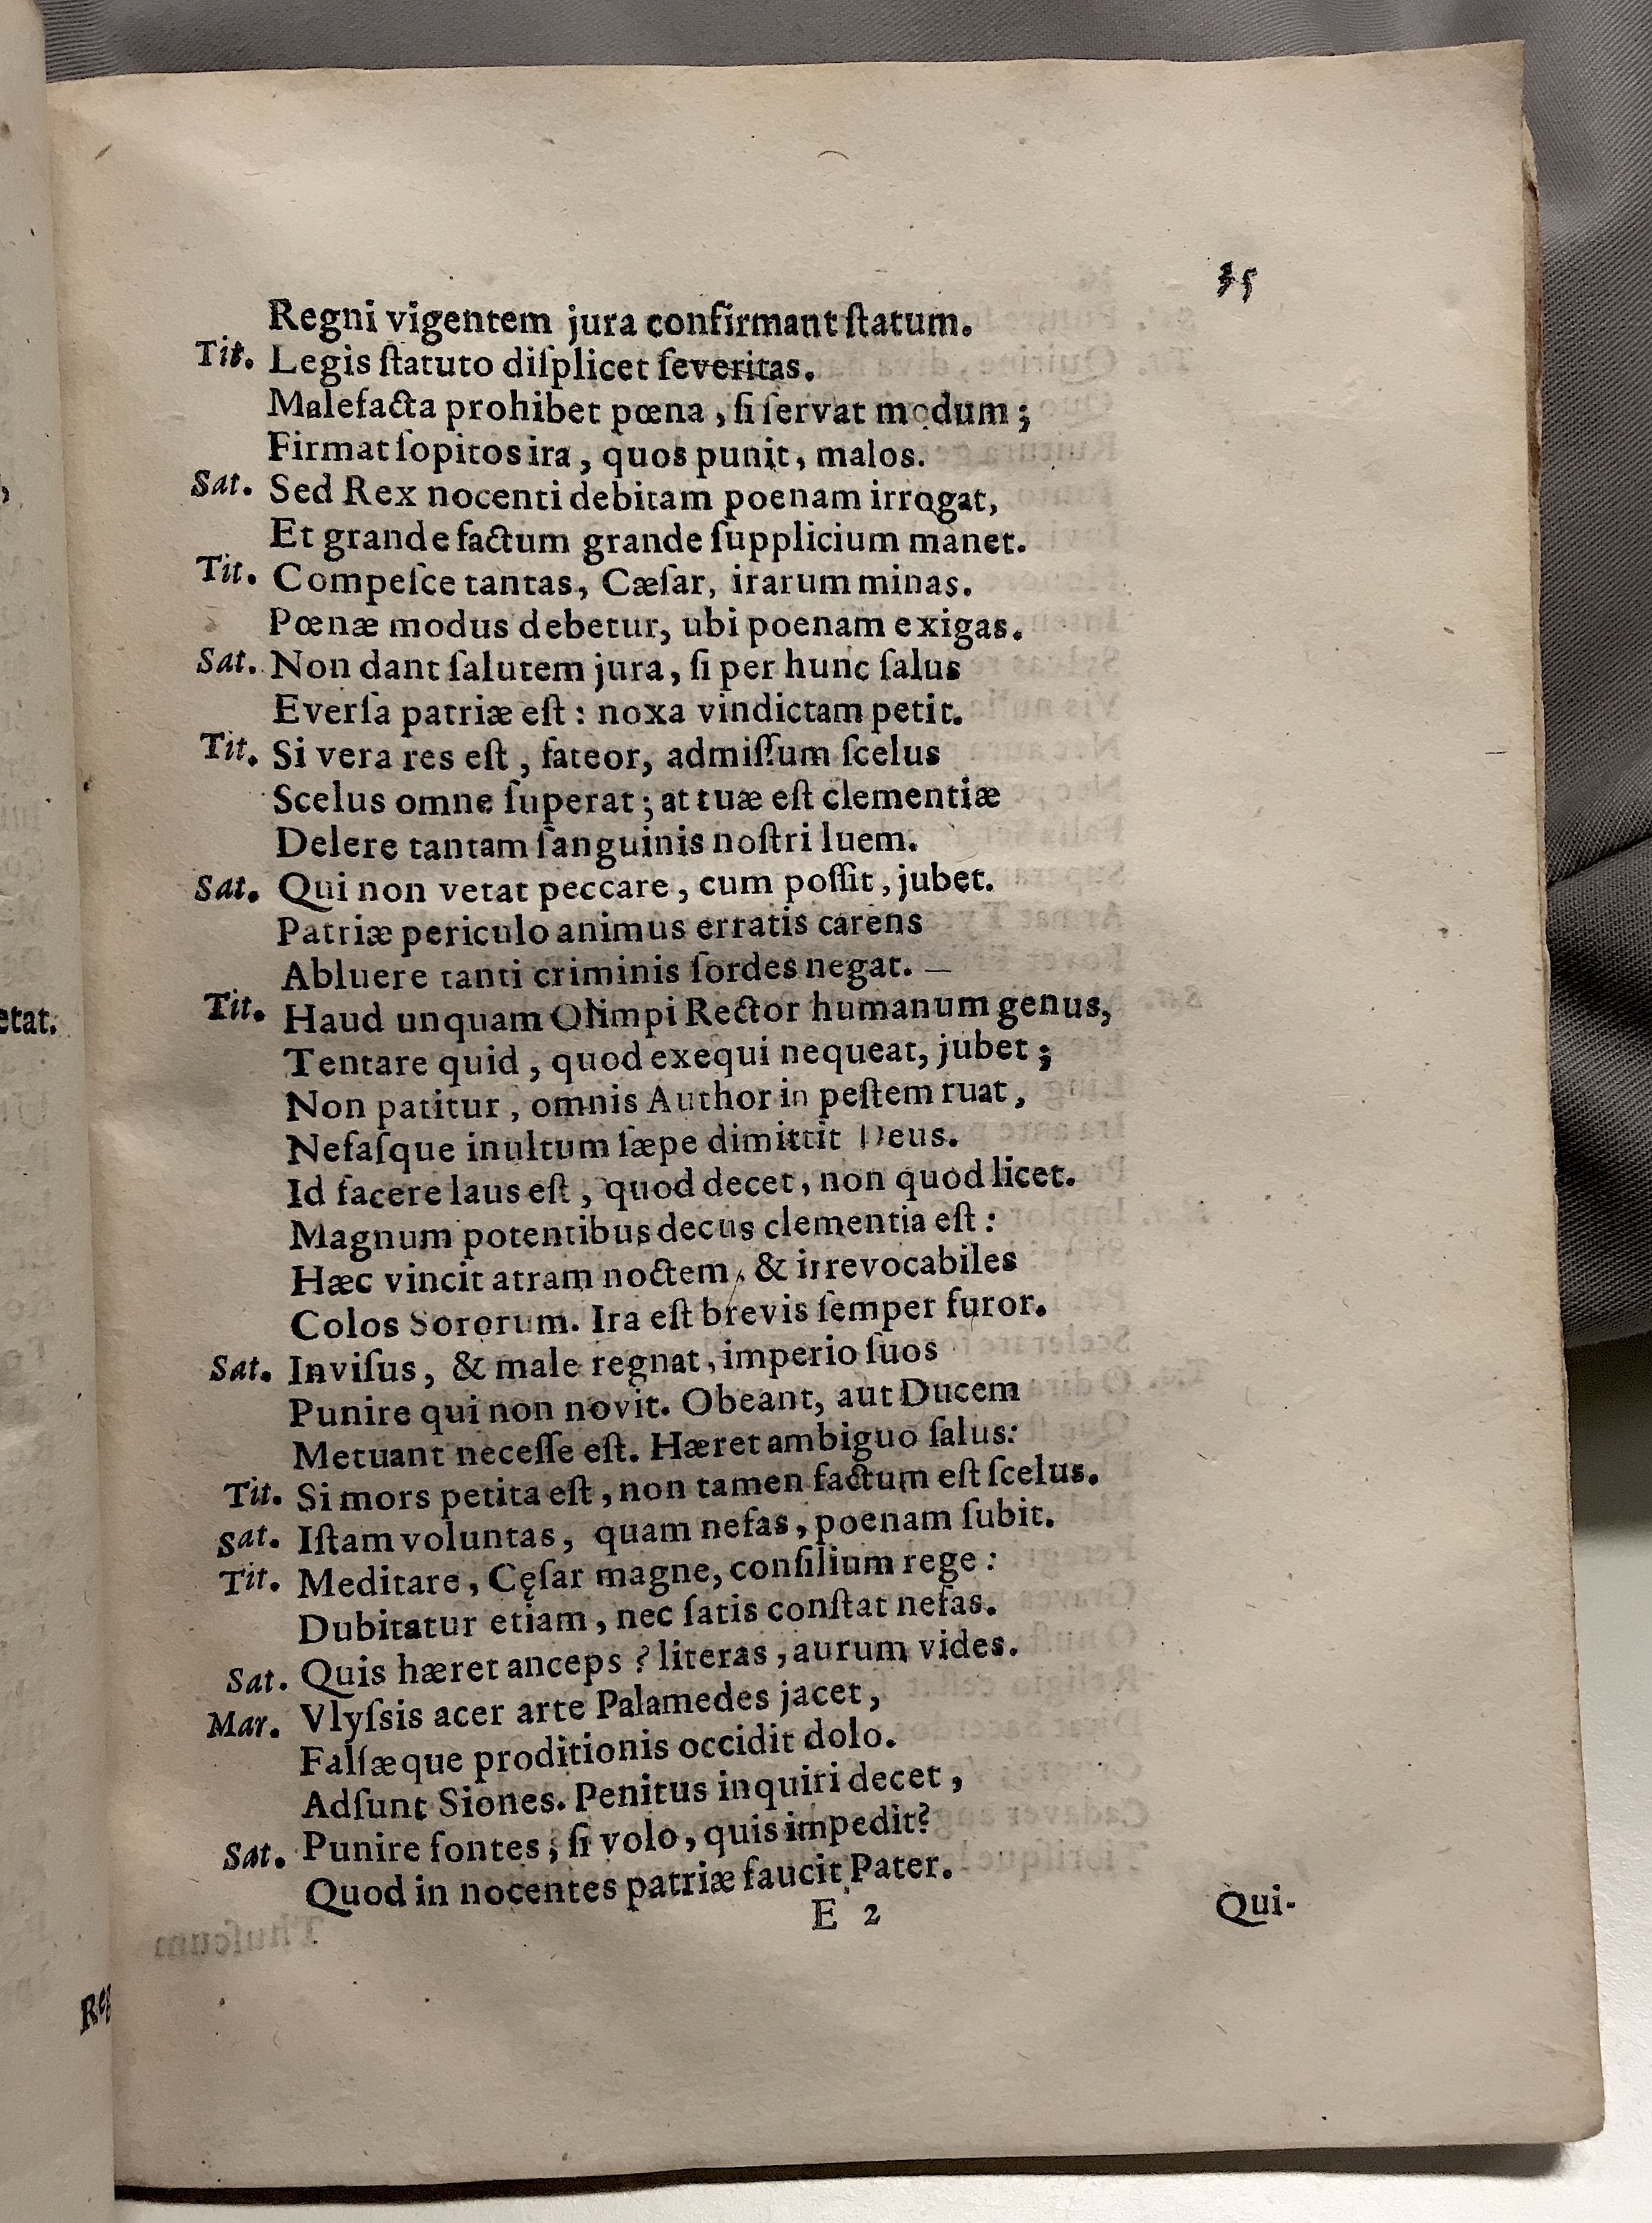 35
Regni vigentem jura confirmant ſtatum.
Tit. Legis ſtatuto diſplicet ſeveritas.
Malefacta prohibet pœna, ſi ſervat modum;
Firmat ſopitos ira, quos punit, malos.
Sat. Sed Rex nocenti debitam poenam irrogat,
Et grande factum grande ſupplicium manet.
Tit. Compeſce tantas, Cæſar, irarum minas.
Pœnæ modus debetur, ubi poenam exigas.
Sat. Non dant ſalutem jura, ſi per hunc ſalus
Everſa patriæ eſt: noxa vindictam petit.
Tit. Si vera res eſt, fateor, admiſſum ſcelus
Scelus omne ſuperat; at tuæ eſt clementiæ
Delere tantam ſanguinis noſtri luem.
Sat. Qui non vetat peccare, cum poſſit, jubet.
Patriæ periculo animus erratis carens
Abluere tanti criminis ſordes negat. —
Tit. Haud unquam Olimpi Rector humanum genus,
Tentare quid, quod exequi nequeat, jubet;
Non patitur, omnis Author in peſtem ruat,
Nefaſque inultum ſæpe dimittit Deus.
Id facere laus eſt, quod decet, non quod licet.
Magnum potentibus decus clementia eſt:
Hæc vincit atram noctem, & irrevocabiles
Colos Sororum. Ira eſt brevis ſemper furor.
Sat. Inviſus, & male regnat, imperio ſuos
Punire qui non novit. Obeant, aut Ducem
Metuant neceſſe eſt. Hæret ambiguo ſalus:
Tit. Si mors petita eſt, non tamen factum eſt ſcelus.
Sat. Iſtam voluntas, quam nefas, poenam ſubit.
Tit. Meditare, Cęſar magne, conſilium rege:
Dubitatur etiam, nec ſatis conſtat nefas.
Sat. Quis hæret anceps? literas, aurum vides.
Mar. Vlyſsis acer arte Palamedes jacet,
Falſæque proditionis occidit dolo.
Adſunt Siones. Penitus inquiri decet,
Sat. Punire ſontes; ſi volo, quis impedit?
Quod in nocentes patriæ ſaucit Pater.
E 2
Qui-
etat.